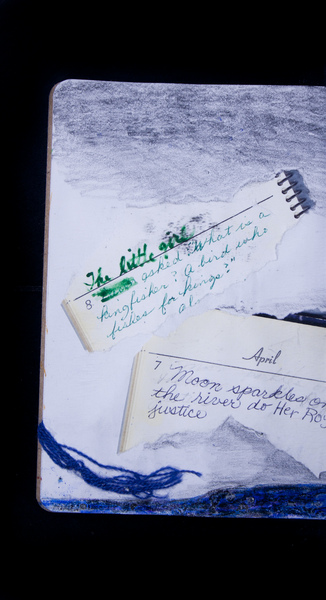 The little girl
8 asked "What is a
kingfisher? A bird who
fishes for kings?"
April
7 Moon sparkles on
the river do Her Ro
justice